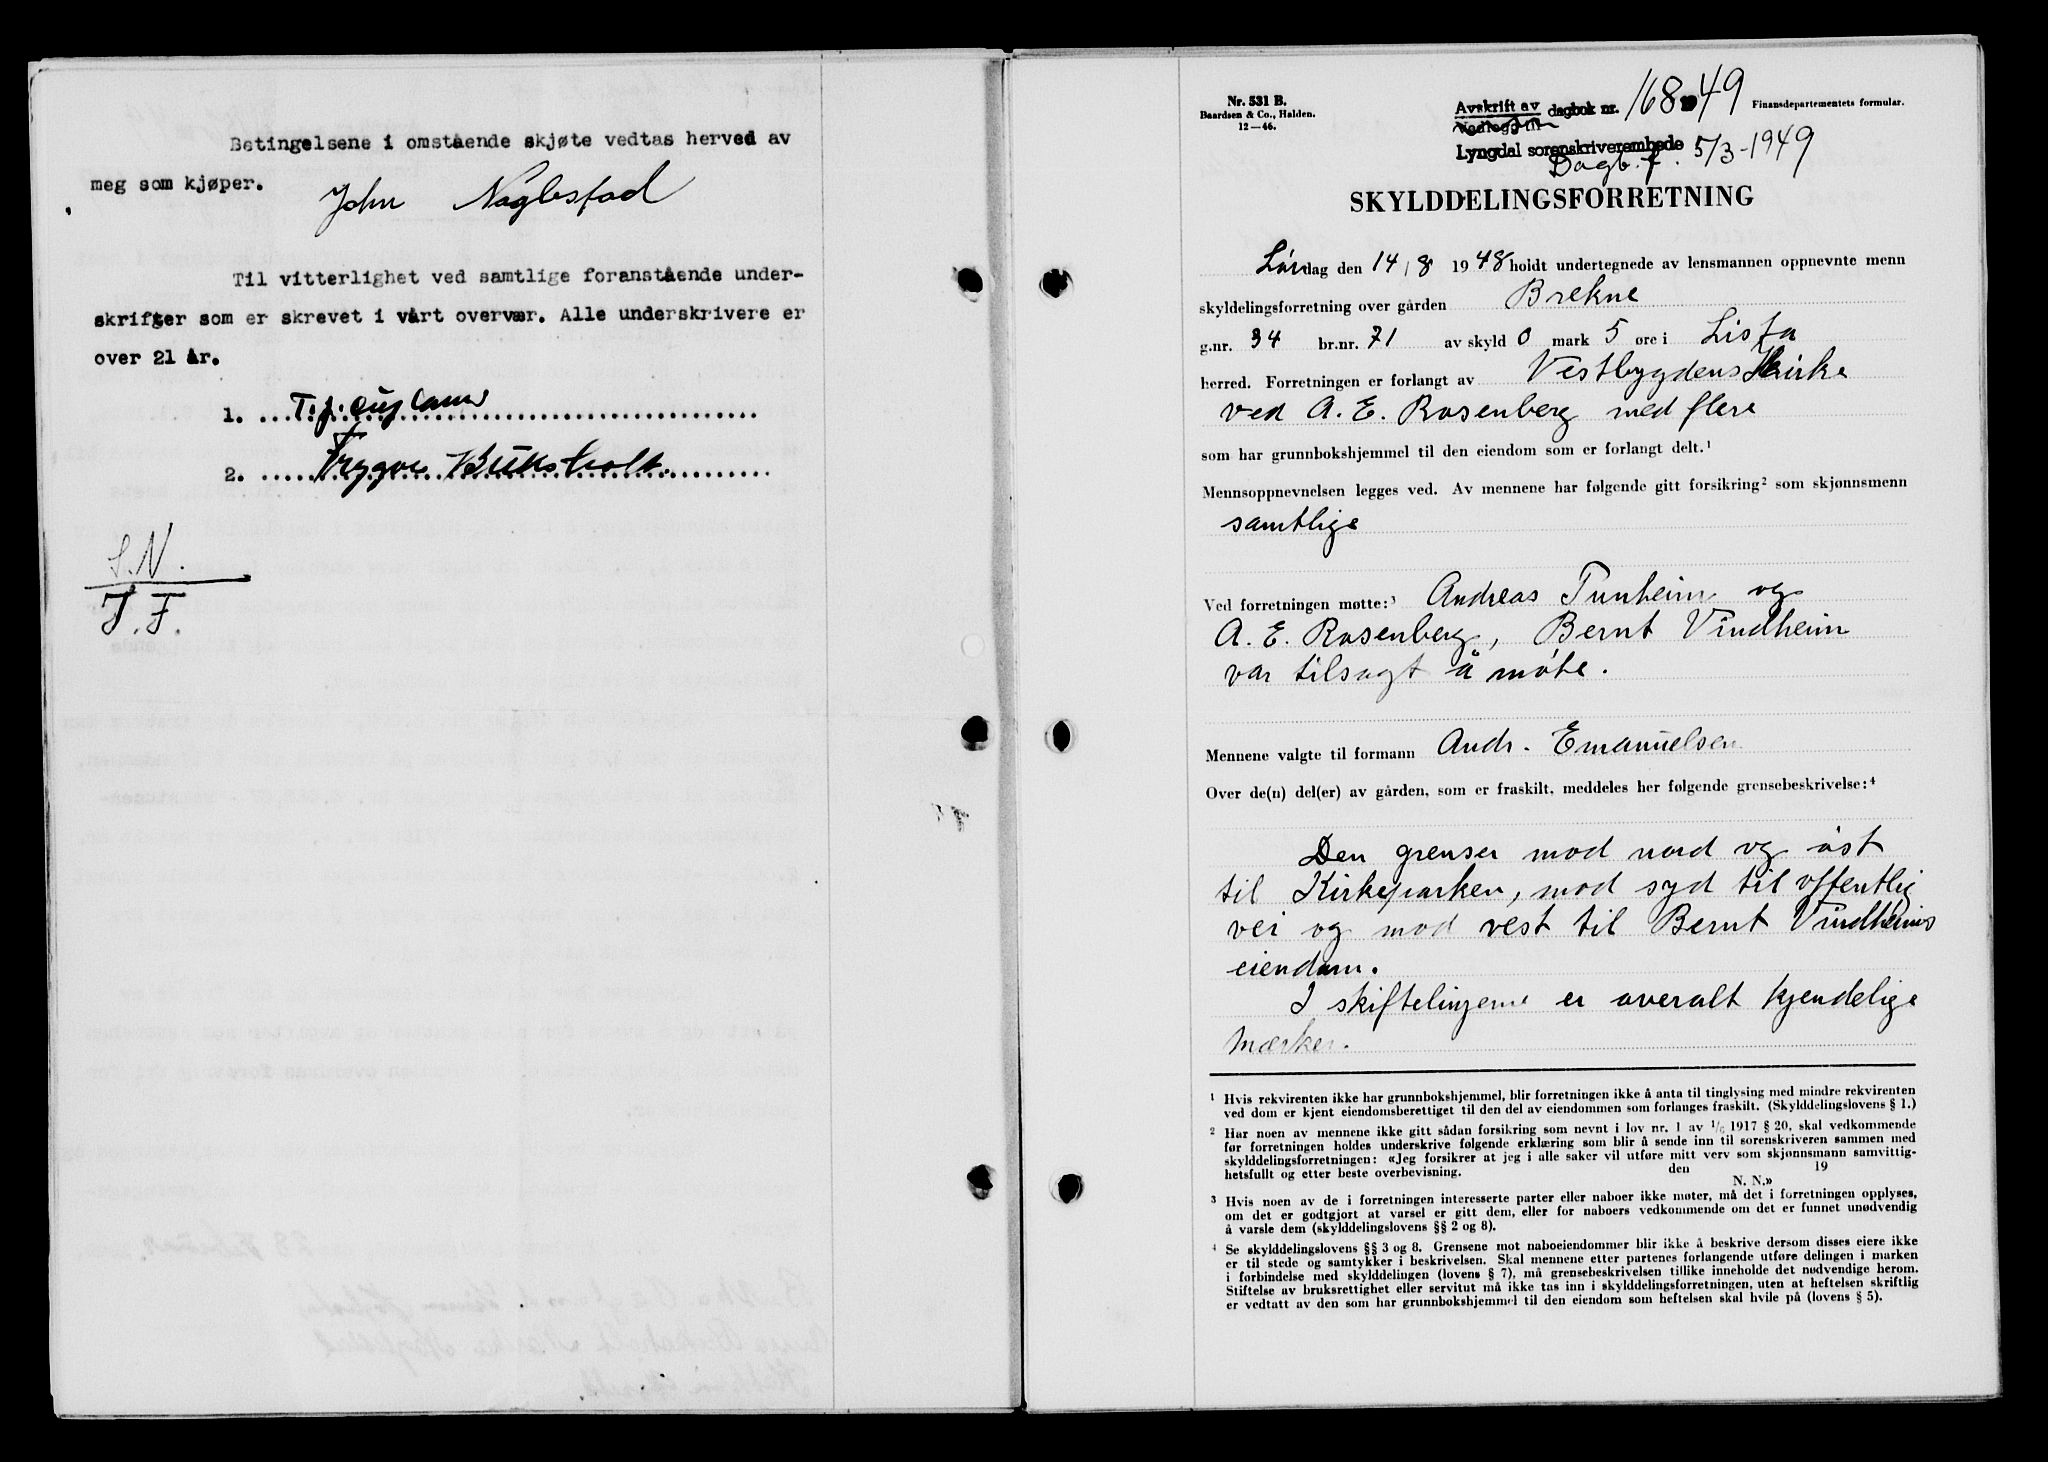 Betingelsene i omstående skjøte vedtas herved av
meg som kjøper.
John Naglestad
Til vitterlighet ved samtlige foranstående under-
skrifter som er skrevet i vårt overvær. Alle underskrivere er
over 21 år.
1.
2. Trygve
S.N.
J.F.
Nr. 531 B.
Baardsen & Co., Halden.
12—46.
Avskrift av
Vedlegg til
dagbok nr. 168 1949
Finansdepartementets formular.
Lyngdal sorenskriverembede
Dagb.f. 5/3-1949
SKYLDDELINGSFORRETNING
Lørdag den 14/8 1948 holdt undertegnede av lensmannen oppnevnte menn
skyldelingsforretning over gården Brekne
g.nr. 34 br.nr. 71 av skyld 0 mark 5 øre i Lista
herred. Forretningen er forlangt av Vestbygdens Kirke
ved A. E. Rosenberg med flere
som har grunnbokshjemmel til den eiendom som er forlangt delt.¹
Mennsoppnevnelsen legges ved. Av mennene har følgende gitt forsikring² som skjønnsmenn
samtlige
Ved forretningen møtte:³ Andreas Tunheim og
A. E. Rosenberg, Bernt Vindheim
var tilsagt å møte.
Mennene valgte til formann Andr. Emanuelsen
Over de(n) del(er) av gården, som er fraskilt, meddeles her følgende grensebeskrivelse:⁴
Den grenser mod nord og øst
til Kirkeparken, mod syd til offentlig
vei og mod vest til Bernt Vindheims
eiendom.
I skiftelinjerne er overalt kjendelige
mærker.
1 Hvis rekvirenten ikke har grunnbokshjemmel, blir forretningen ikke å anta til tinglysing med mindre rekvirenten
ved dom er kjent eiendomsberettiget til den del av eiendommen som forlanges fraskilt. (Skylddelingslovens § 1.)
2 Har noen av mennene ikke gitt sådan forsikring som nevnt i lov nr. 1 av 1/6 1917 § 20, skal vedkommende
før forretningen holdes underskrive følgende erklæring som blir å sende inn til sorenskriveren sammen med
skylddelingsforretningen: «Jeg forsikrer at jeg i alle saker vil utføre mitt verv som skjønnsmann samvittig-
hetsfullt og etter beste overbevisning. den 19
N. N.»
3 Hvis noen av de i forretningen interesserte parter eller naboer ikke møter, må det i forretningen opplyses,
om det er godtgjort at varsel er gitt dem, eller for naboers vedkommende om det er funnet unødvendig
å varsle dem (skylddelingslovens §§ 2 og 8).
4 Se skylddelingslovens §§ 3 og 8. Grensene mot naboeiendommer blir ikke å beskrive dersom disses eiere ikke
er til stede og samtykker i beskrivelsen. Skal mennene etter partenes forlangende utføre delingen i marken
i forbindelse med skylddelingen (lovens § 7), må grensebeskrivelsen tillike inneholde det nødvendige herom.
Stiftelse av bruksrettighet eller servitut må ikke tas inn i skylddelingsforretningen, uten at heftelsen skriftlig
er vedtatt av den som har grunnbokshjemmel til den eiendom som heftelsen skal hvile på (lovens § 5).